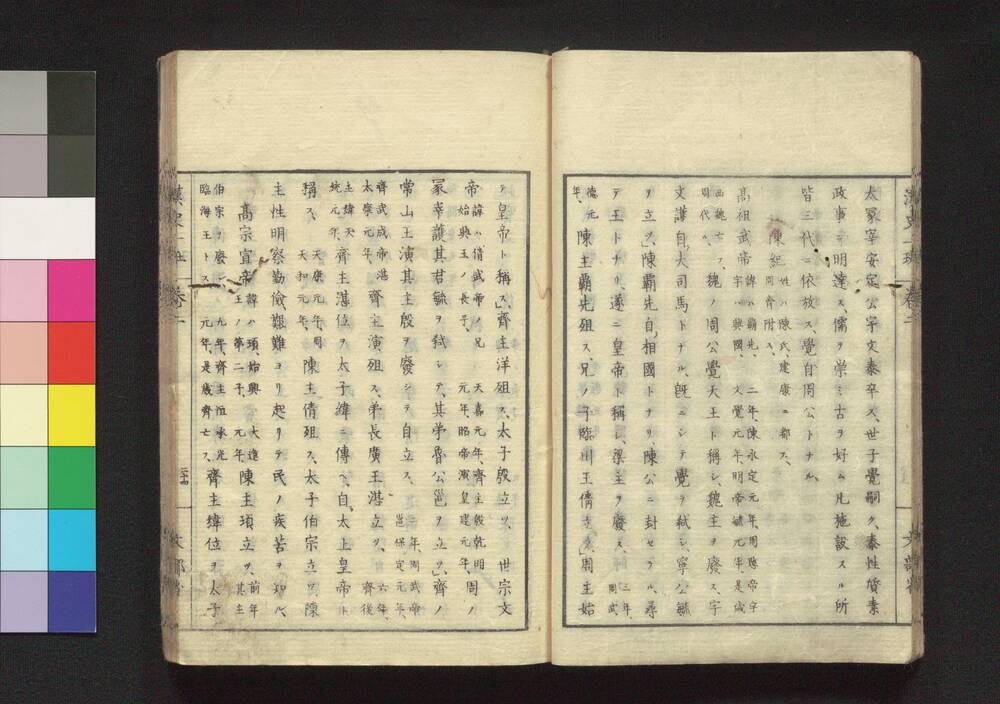 太冢宰安定公宇文泰卒ス、世子覺嗣ク、泰性質素
政事ニ明達ス、儒ヲ崇ミ古ヲ好ム、凡施設スル所
皆三代ニ依放ス、覺自周公トナル、
陳紀 姓ハ陳氏、建康ニ都ス、周齊附ス、
高祖武帝 諱ハ霸先、字ハ興國、 二年、陳永定元年、周愍帝宇文覺元年、明帝毓元年、是歳西魏亡フ、周代ル、
魏ノ周公覺天王ト稱シ、魏主ヲ廢ス、宇
文護自、大司馬トナル、旣ニシテ覺ヲ弑シ、寧公毓
ヲ立ツ、陳霸先自、相國トナリ、陳公ニ封セラル、尋
テ王トナリ、遂ニ皇帝ト稱シ、梁主ヲ廢ス、 三年、周武
德元年、 陳主霸先殂ス、兄ノ子臨川王蒨立ツ、周主始
テ皇帝ト稱ス、齊主洋殂ス、太子殷立ツ、 世宗文
帝 諱ハ蒨、武帝ノ兄始興王ノ長子、 天嘉元年、齊主殷乾明元年、昭帝演皇建元年、 周ノ
冢宰護其君毓ヲ弑シテ、其弟魯公邕ヲ立ツ、齊ノ
常山王演其主殷ヲ廢シテ自立ス、 二年、周武帝邕保定元年、
齊武成帝湛太寧元年、 齊主演殂ス、弟長廣王湛立ツ、 六年、齊後
主緯天統元年、 齊主湛位ヲ太子緯ニ傳ヘ、自、太上皇帝ト
稱ス、 天康元年、周天和元年、 陳主蒨殂ス、太子伯宗立ツ、陳
主性明察勤儉艱難ヨリ起リテ民ノ疾苦ヲ知ル、
高宗宣帝 諱ハ頊、始興王ノ第二子、 大建元年、 陳主頊立ツ、 前年其主
伯宗ヲ廢シ臨海王トス、 九年、齊主恒承光元年、是歳齊亡ス、 齊主緯位ヲ太子
漢史一班 卷二
文部省